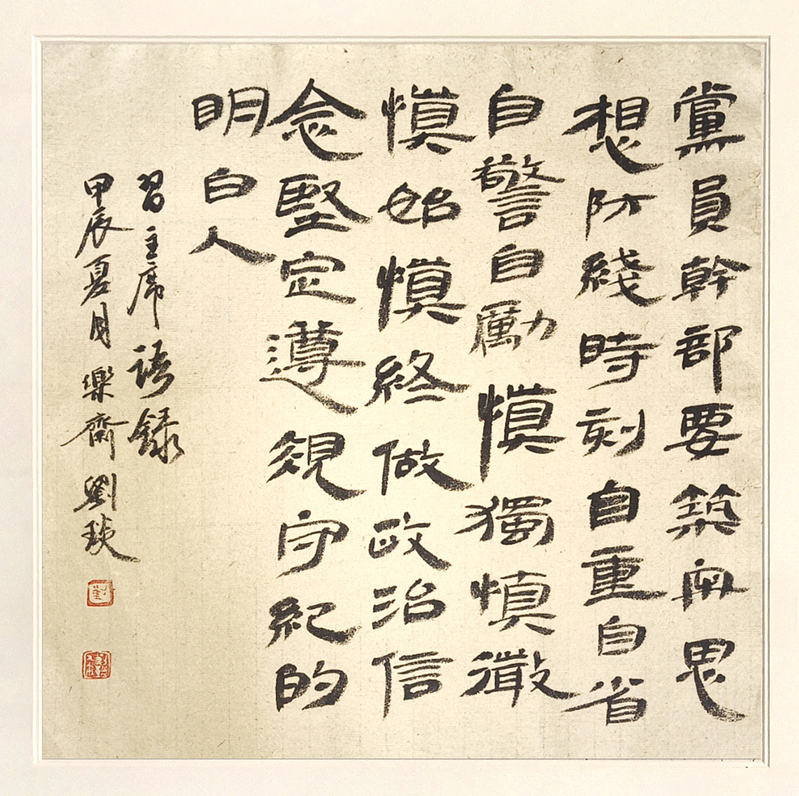 黨員幹部要築牢思
想防綫時刻自重自省
自警自勵慎獨慎微
慎始慎終做政治信
念堅定遵規守紀的
明白人
習主席語録
甲辰夏月樂齋劉琰